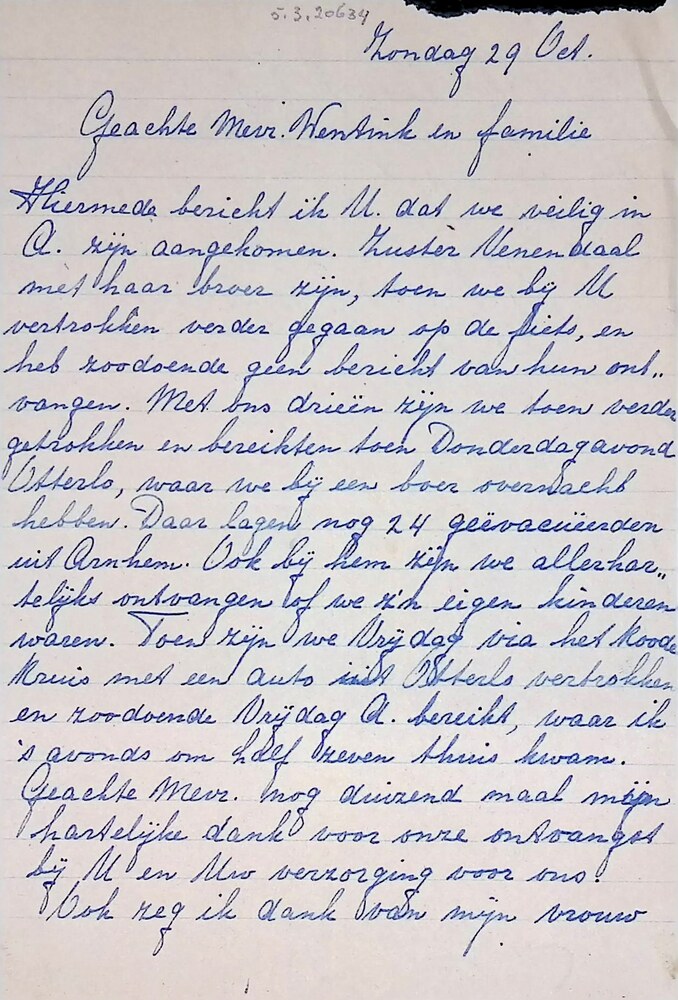 5.3.20634
Zondag 29 Oct.
Geachte Mevr. Wentink en familie
Hiermede bericht ik U. dat we veilig in
A. zijn aangekomen. Zuster Venendaal
met haar broer zijn, toen we bij U
vertrokken verder gegaan op de fiets, en
heb zoodoende geen bericht van hun ont„
vangen. Met ons drieën zijn we toen verder
getrokken en bereikten toen Donderdagavond
Otterlo, waar we bij een boer overnacht
hebben. Daar lagen nog 24 geëvacueerden
uit Arnhem. Ook bij hem zijn we allerhar„
telijks ontvangen of we z'n eigen kinderen
waren. Toen zijn we Vrijdag via het Roode
Kruis met een auto uit Otterlo vertrokken
en zoodoende Vrijdag A. bereikt, waar ik
's avonds om half zeven thuis kwam.
Geachte Mevr. nog duizend maal mijn
hartelijke dank voor onze ontvangst
bij U en Uw verzorging voor ons.
Ook zeg ik dank van mijn vrouw